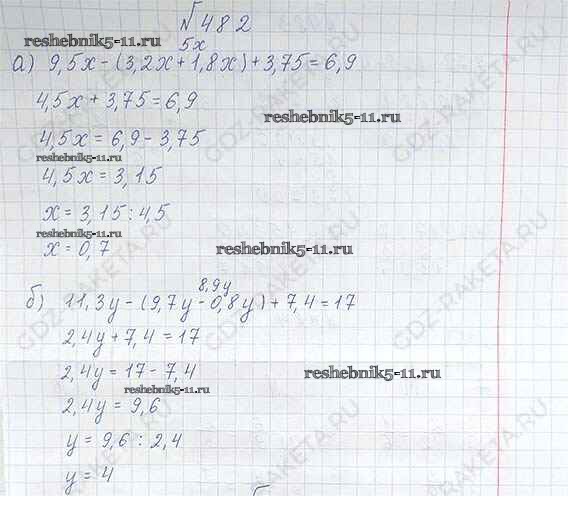 № 482
reshebnik5-11.ru
5x
а) 9,5x - (3,2x + 1,8x) + 3,75 = 6,9
4,5x + 3,75 = 6,9
reshebnik5-11.ru
4,5x = 6,9 - 3,75
reshebnik5-11.ru
4,5x = 3,15
x = 3,15 : 4,5
reshebnik5-11.ru
x = 0,7
reshebnik5-11.ru
8,9y
б) 11,3y - (9,7y - 0,8y) + 7,4 = 17
2,4y + 7,4 = 17
2,4y = 17 - 7,4
reshebnik5-11.ru
reshebnik5-11.ru
2,4y = 9,6
y = 9,6 : 2,4
y = 4
GDZ-RAKETA.RU
GDZ-RAKETA.RU
GDZ-RAKETA.RU
GDZ-RAKETA.RU
GDZ-RAKETA.RU
GDZ-RAKETA.RU